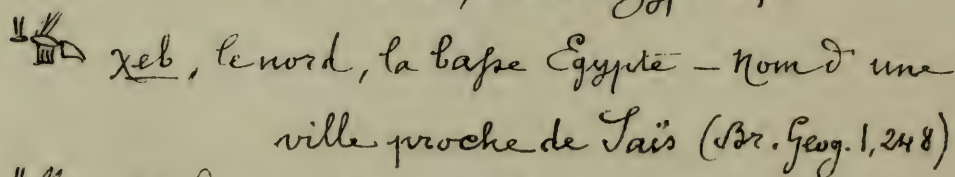 χeb, le nord, la basse Égypte – nom d'une
ville proche de Saïs (Br. Geog. 1, 248)